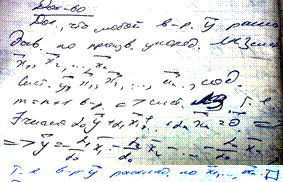 Док-во
Док, что любой в-р. y⃗ раскл
дав. по произв. упоряд. ЛНЗ сис
x⃗₁, x⃗₂, ..., x⃗ₙ
Сист. y⃗, x⃗₁, x⃗₂, ..., x⃗ₙ, сод.
m = n+1 в-р. => сист. ЛЗ, т.е.
∃ числа α₀y⃗ + α₁x⃗₁ + ... αₙx⃗ₙ = 0⃗ =>
=> y⃗ = -α₁/α₀ x⃗₁ - α₂/α₀ x⃗₂ - ... - αₙ/α₀ x⃗ₙ
т.е. в-р y⃗ расклад. по x⃗₁, ..., x⃗ₙ.